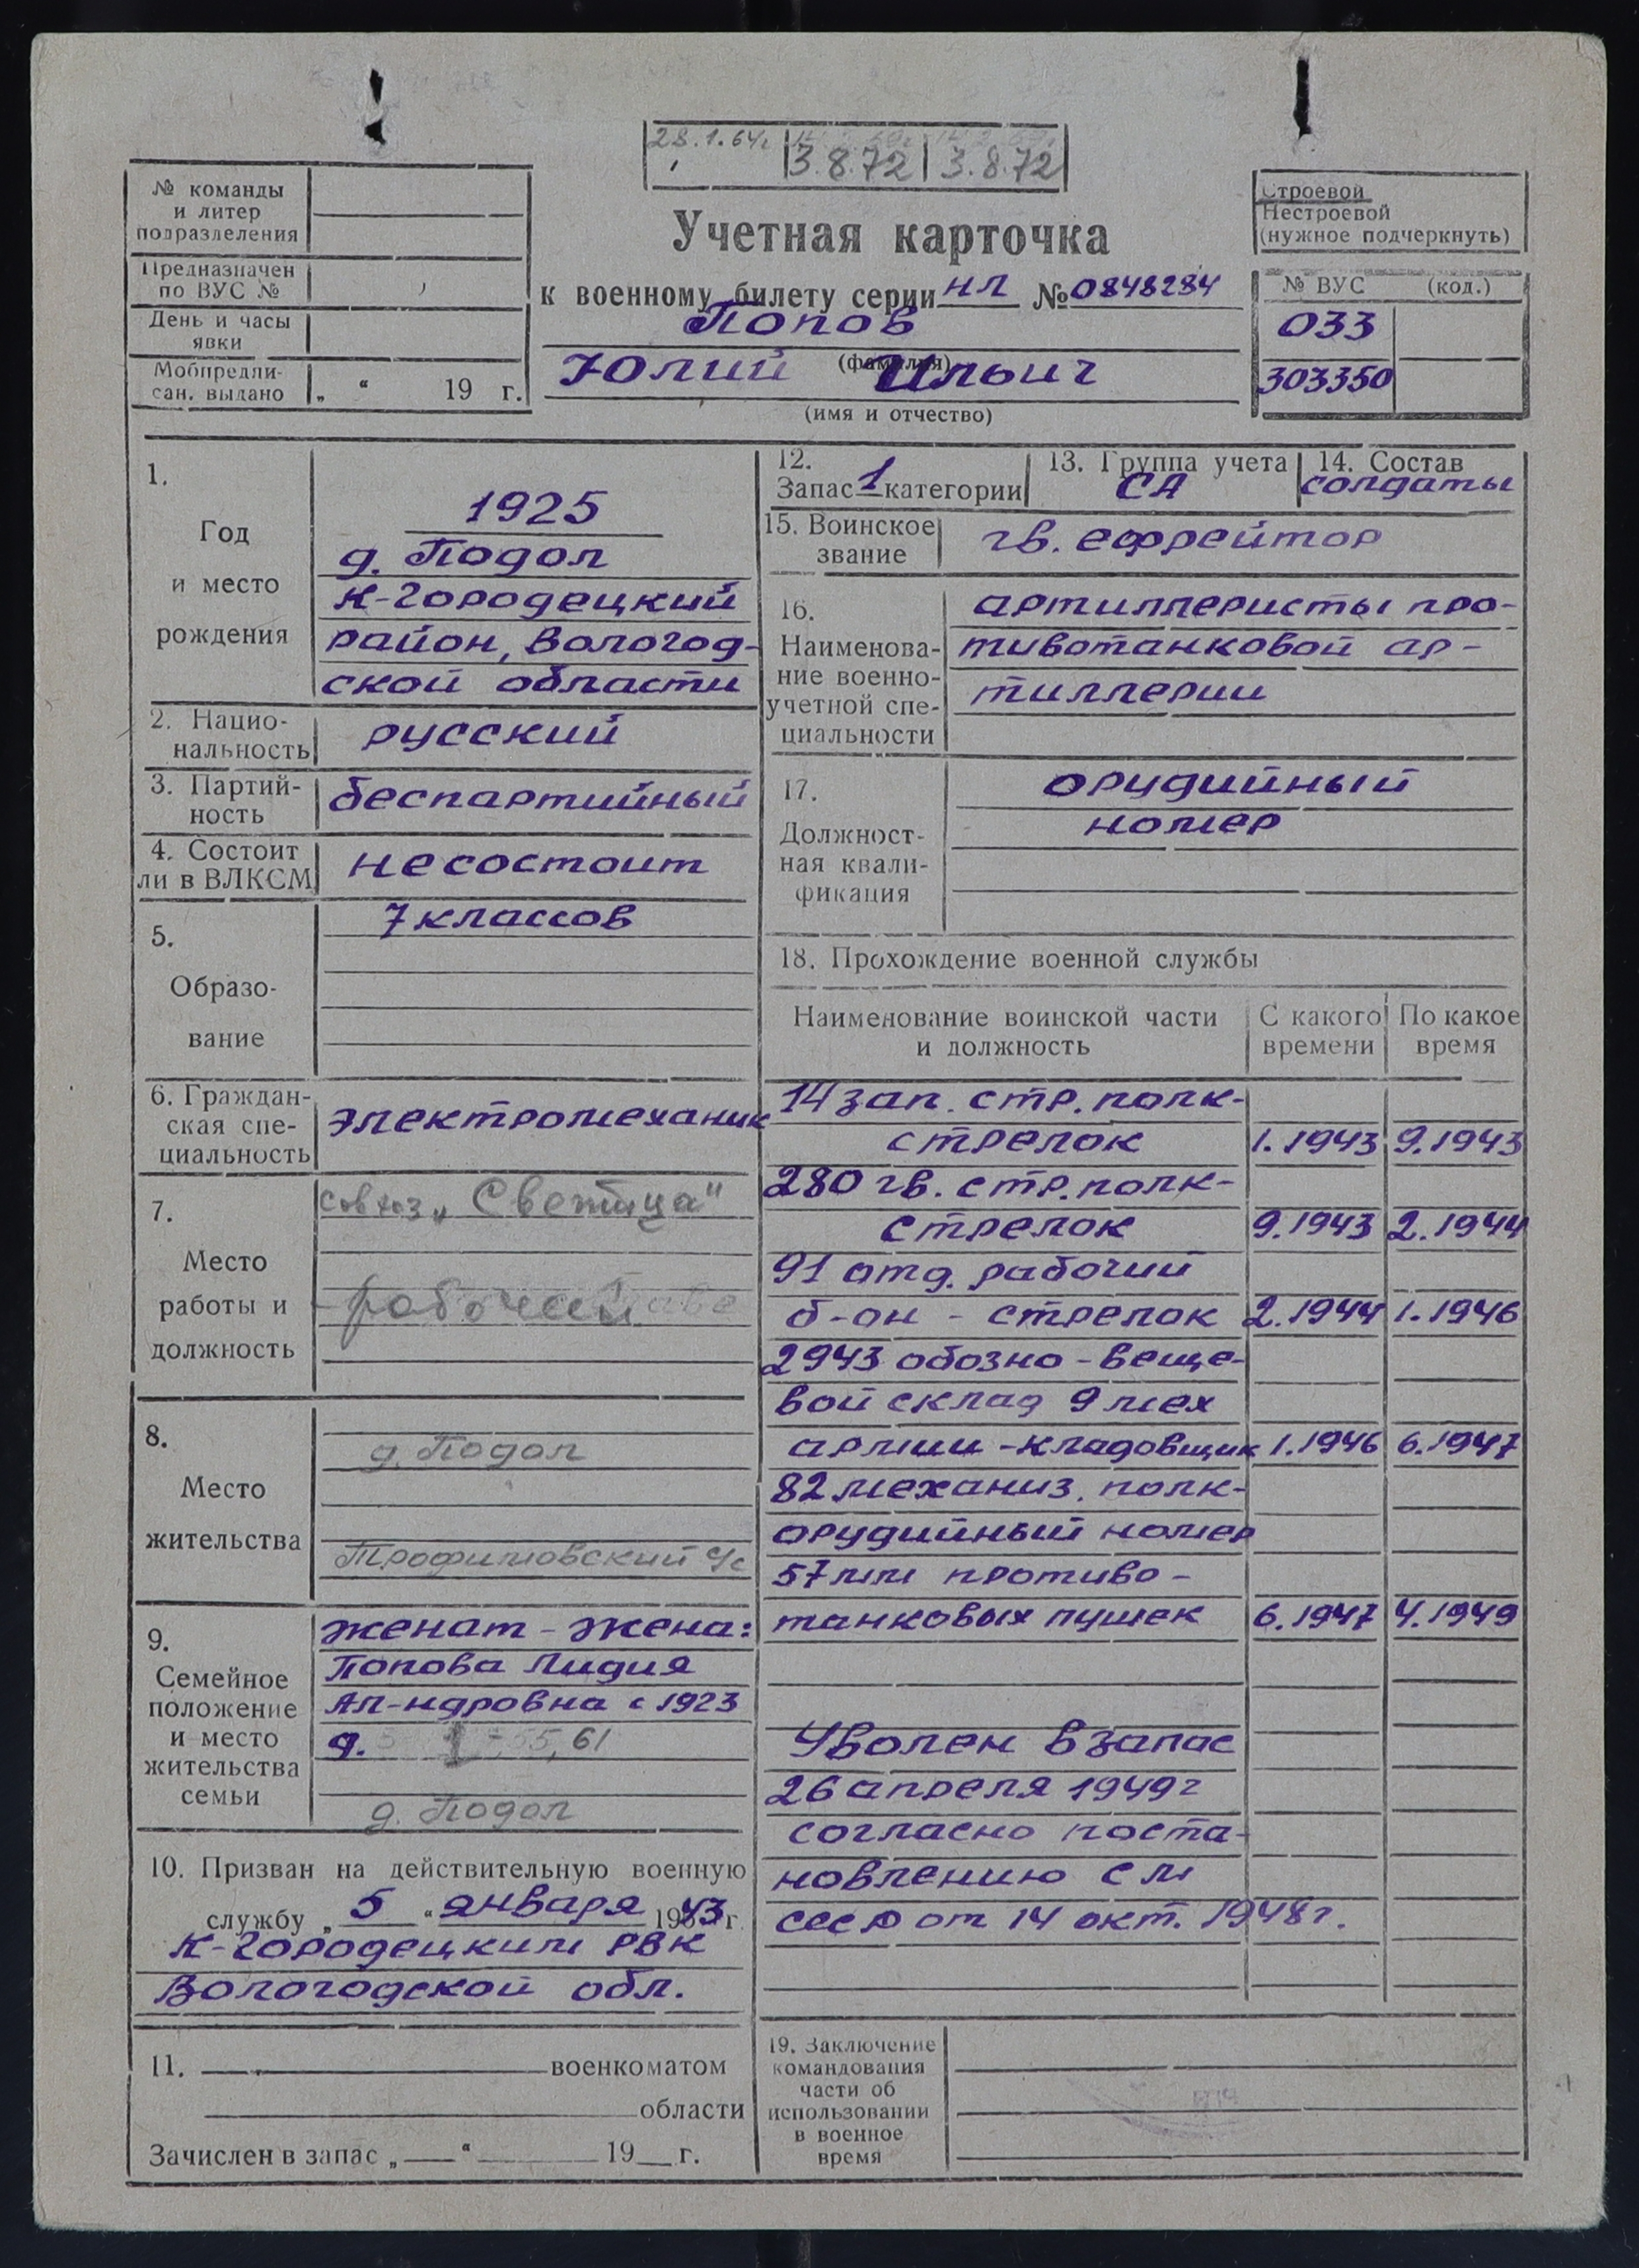 28.1.64г 3.8.72 3.8.72
№ команды
и литер
подразделения
Предназначен
по ВУС №
День и часы
явки
Мобпредпи-
сан. выдано „ “ 19 г.
Учетная карточка
к военному билету серии НЛ № 0848284
Попов
(фамилия)
Юлий Ильич
(имя и отчество)
Строевой
Нестроевой
(нужное подчеркнуть)
№ ВУС (код.)
033
303350
1.
Год
и место
рождения
1925
д. Подол
К-Городецкий
район, Вологод-
ской области
2. Нацио-
нальность
русский
3. Партий-
ность
беспартийный
4. Состоит
ли в ВЛКСМ
не состоит
5.
Образо-
вание
7 классов
6. Граждан-
ская спе-
циальность
электромеханик
7.
Место
работы и
должность
совхоз „Светица"
рабочий
8.
Место
жительства
д. Подол
Трофимовский с/с
9.
Семейное
положение
и место
жительства
семьи
женат - жена:
Попова Лидия
Ал-ндровна с 1923
д. 55, 61
д. Подол
10. Призван на действительную военную
службу „ 5 “ января 1943 г.
К-Городецким РВК
Вологодской обл.
11. военкоматом
области
Зачислен в запас „ “ 19 г.
12.
Запас 1 категории
13. Группа учета
СА
14. Состав
солдаты
15. Воинское
звание
гв. ефрейтор
16.
Наименова-
ние военно-
учетной спе-
циальности
артиллеристы про-
тивотанковой ар-
тиллерии
17.
Должност-
ная квали-
фикация
орудийный
номер
18. Прохождение военной службы
Наименование воинской части
и должность
С какого
времени
По какое
время
14 зап. стр. полк-
стрелок 1.1943 9.1943
280 гв. стр. полк-
стрелок 9.1943 2.1944
91 отд. рабочий
б-он - стрелок 2.1944 1.1946
2943 обозно-веще-
вой склад 9 мех
армии - кладовщик 1.1946 6.1947
82 механиз. полк-
орудийный номер
57 мм противо-
танковых пушек 6.1947 4.1949
Уволен в запас
26 апреля 1949 г
согласно поста-
новлению СМ
СССР от 14 окт. 1948 г.
19. Заключение
командования
части об
использовании
в военное
время